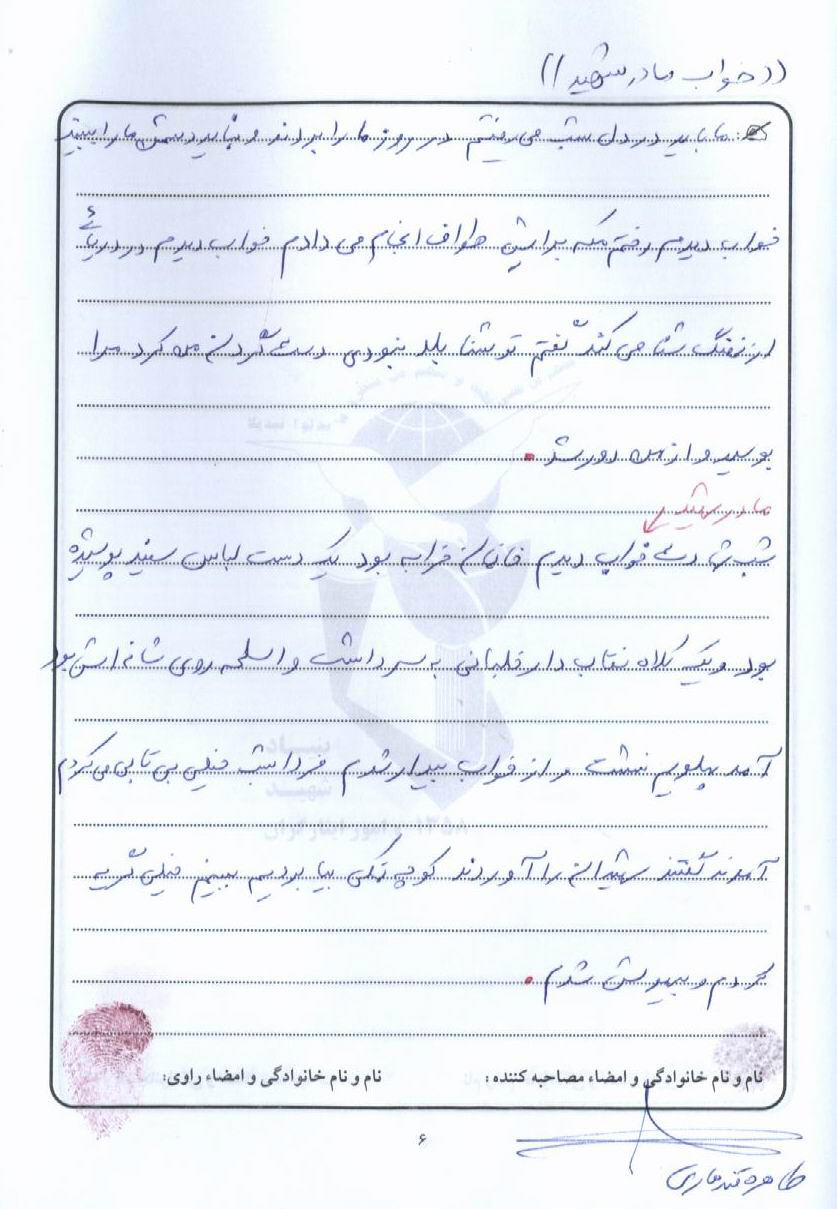 ((خواب مادر شهید))
ج: ما باید در دل شب می رفتیم در روز ما را بردند و نباید دشمن ما را ببیند
خواب دیدم رفتم مکه برایش طواف انجام می دادم خواب دیدم در دریائی
از تفنگ شنا می کند گفتم تو شنا بلد نبودی دست گردن من کرد مرا
بوسید و از من دور شد.
مادر شهید
شب خواب دیدم خانمان خرابه بود یک دست لباس سفید پوشیده
بود و یک کلاه نقاب دار خلبانی به سر داشت و اسلحه روی شانه اش بود
آمد پهلویم نشست و از خواب بیدار شدم فردا شب خیلی بی تابی می کردم
آمدند گفتند شهیدان را آوردند کوچه بیا برویم ببینیم خیلی گریه
کردم و بیهوش شدم.
نام و نام خانوادگی و امضاء مصاحبه کننده: نام و نام خانوادگی و امضاء راوی:
۶
طاهره قندهاری
بنیاد
شهید
و امور ایثارگران
۱۳۵۸